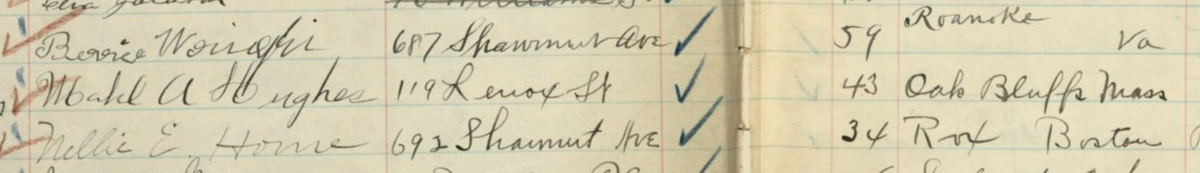 Roanoke
687 Shawmut Ave 59 Va
Mabel A Hughes 119 Lenox St 43 Oak Bluffs Mass
Nellie E Horne 692 Shawmut Ave 34 Rox Boston